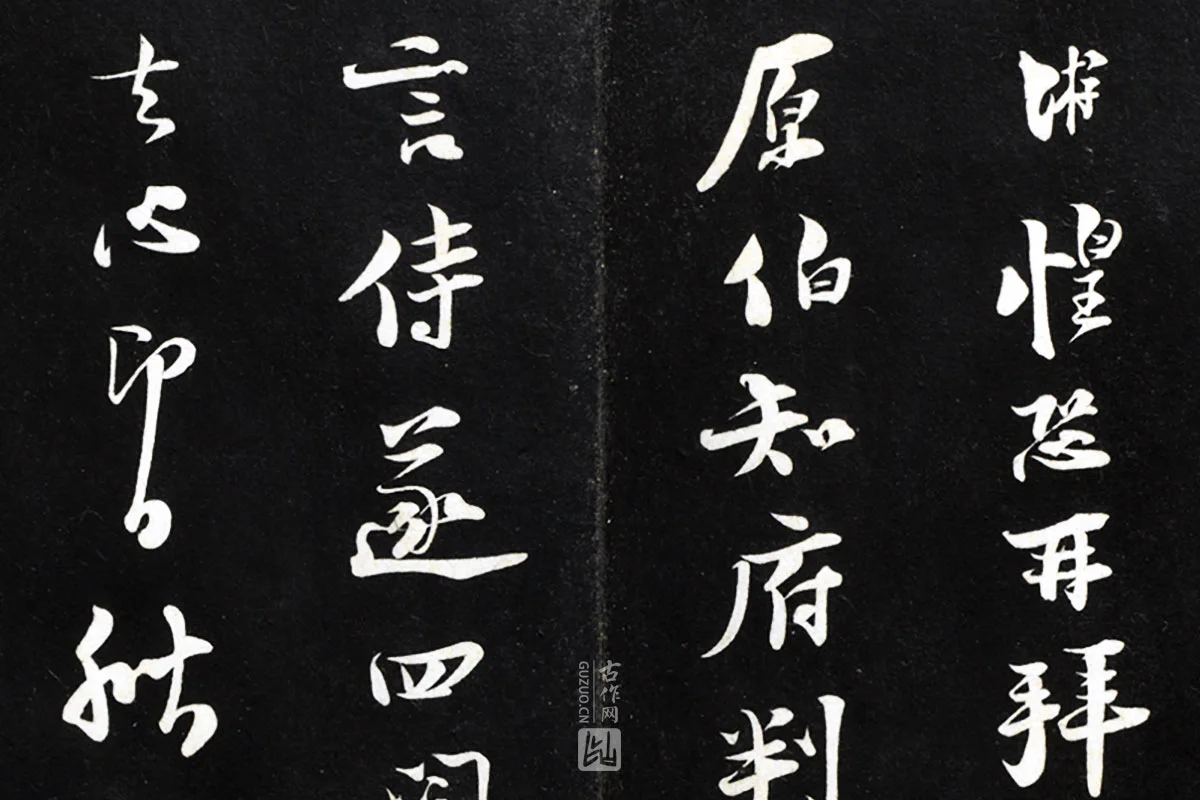 游惶恐再拜
原伯知府判
言侍遂四
去心即日秋
古作网
GUZUO.CN